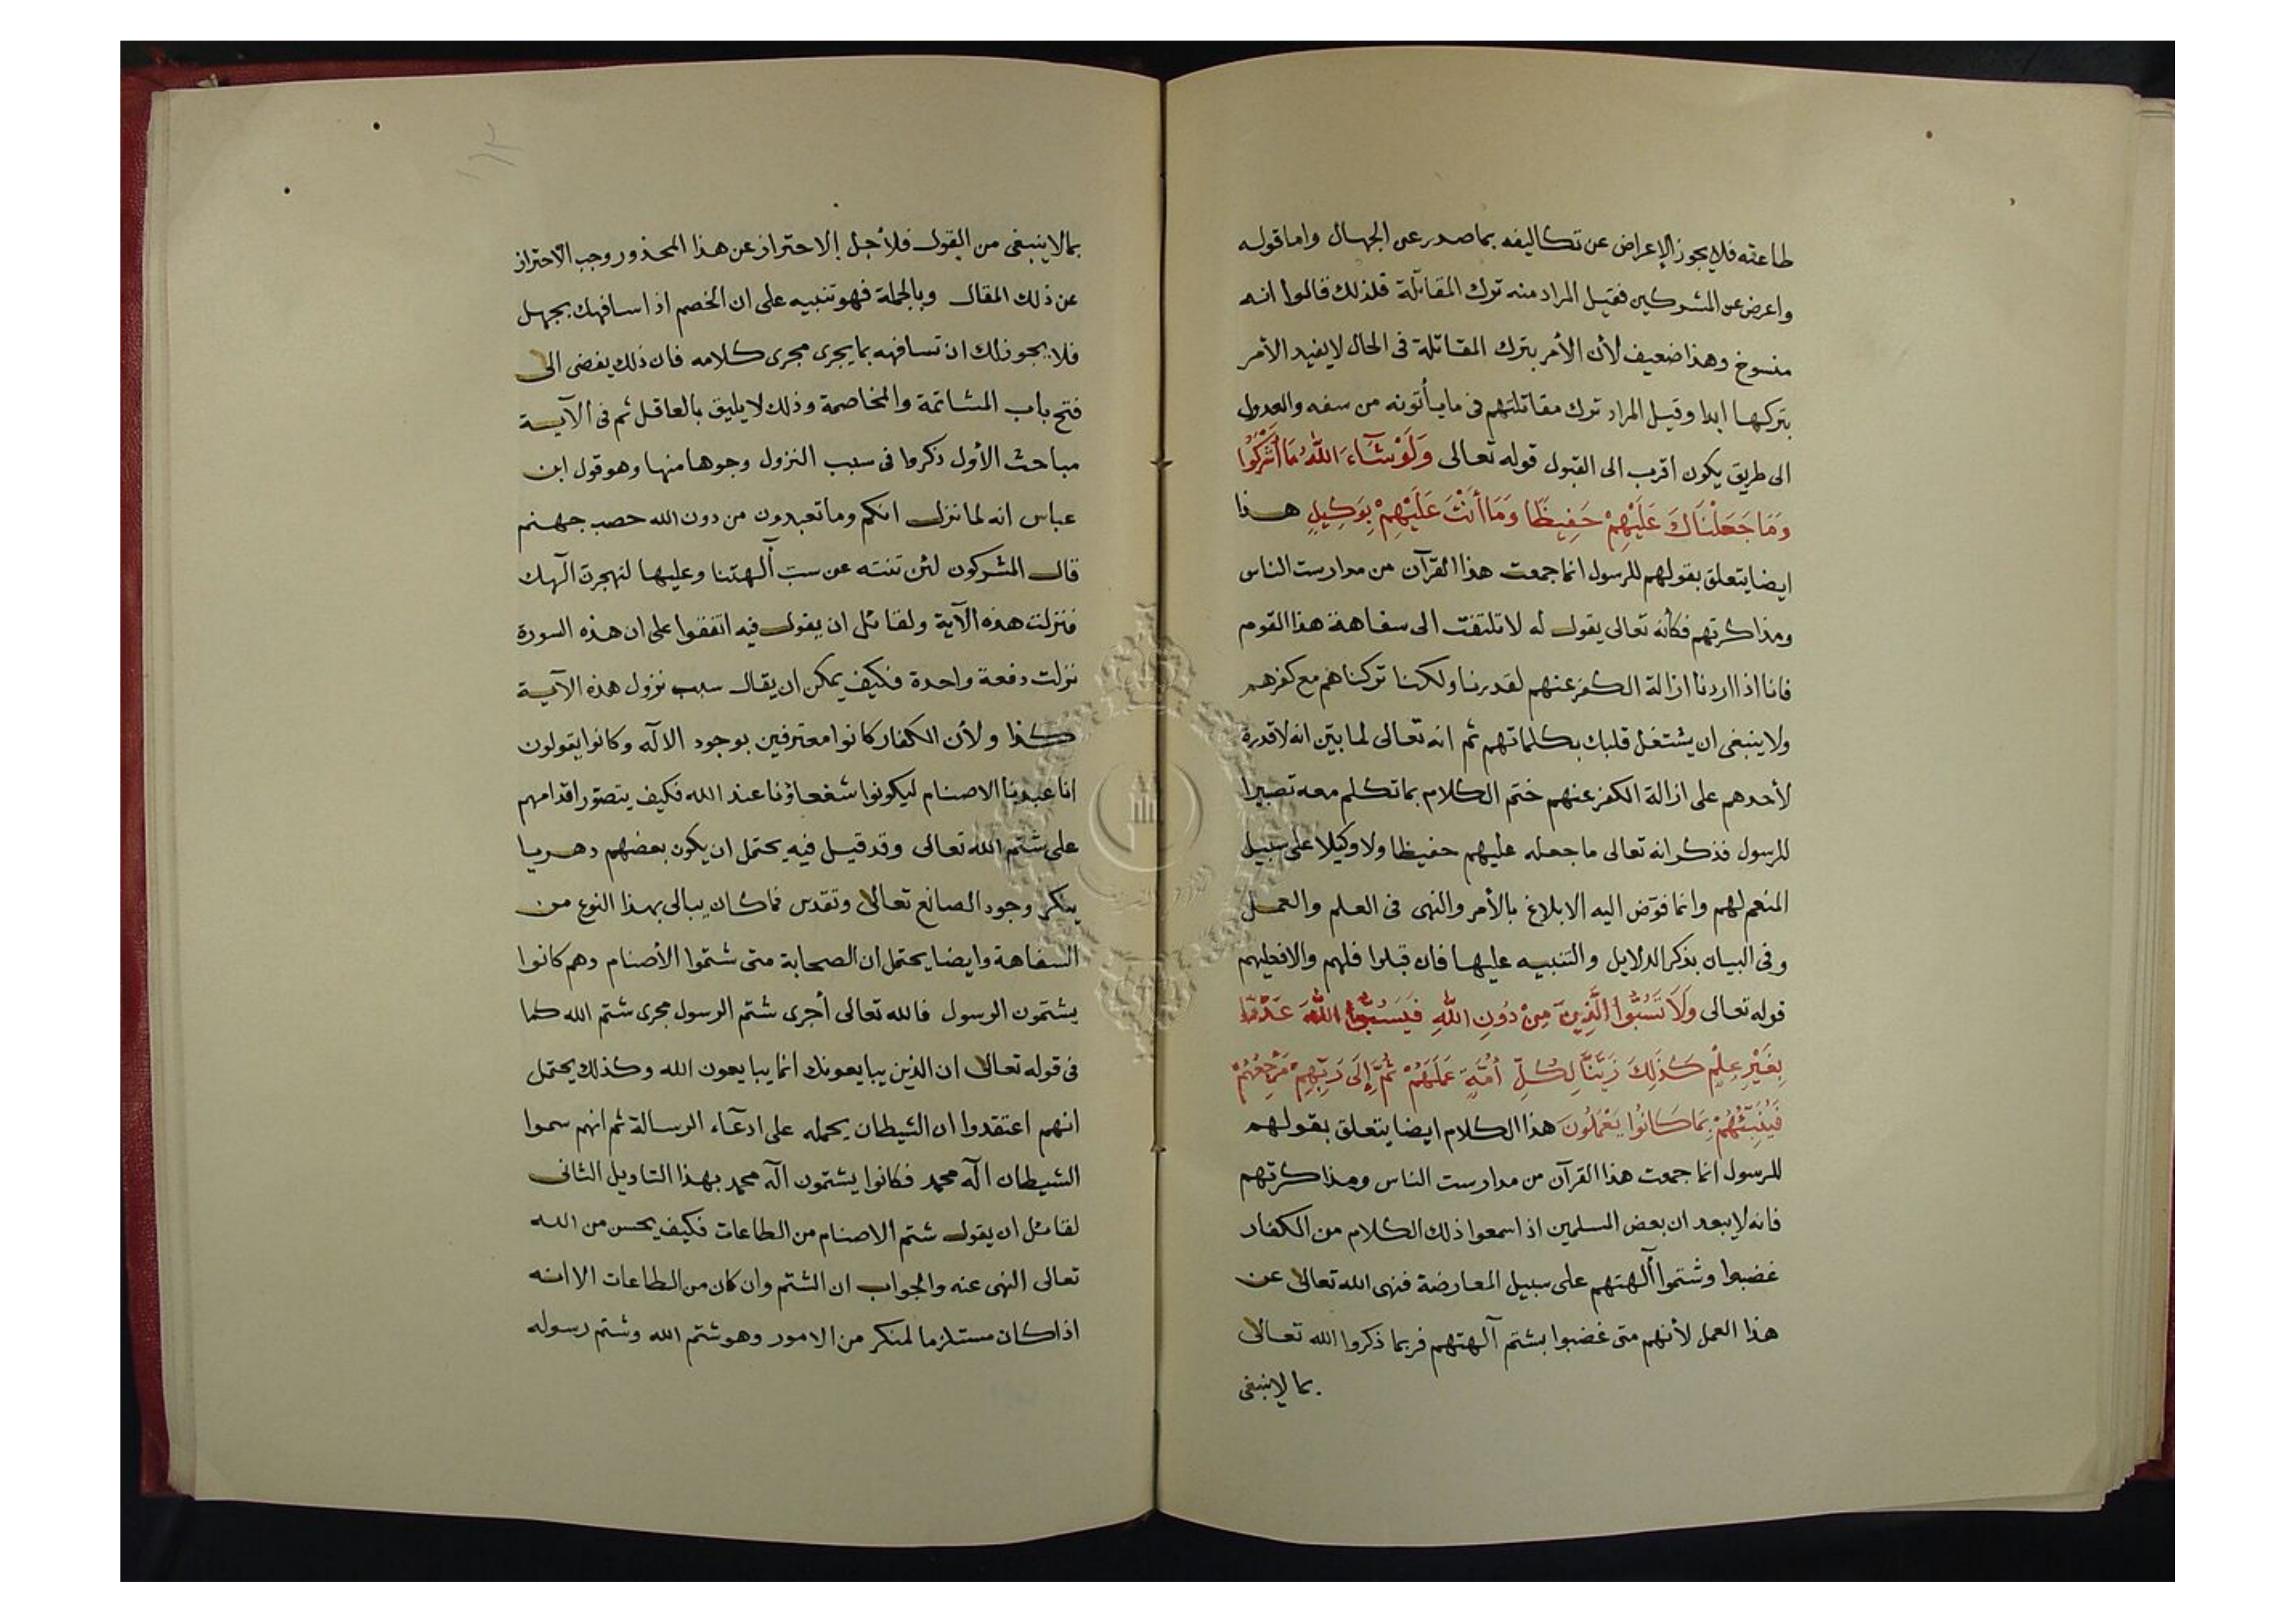 طاعته فلا يجوز الإعراض عن تكاليفه بما صدر عن الجهال واما قوله
واعرض عن المشركين فقيل المراد منه ترك المقاتلة فلذلك قالوا انه
منسوخ وهذا ضعيف لأن الأمر بترك المقاتلة فى الحال لا يفيد الأمر
بتركها ابدا وقيل المراد ترك مقاتلتهم فى ما يأتونه من سفه والعدول
الى طريق يكون أقرب الى القبول قوله تعالى وَلَوْ شَآءَ اللّٰهُ مَا أَشْرَكُوا
وَمَا جَعَلْنَاكَ عَلَيْهِمْ حَفِيظًا وَمَا أَنْتَ عَلَيْهِمْ بِوَكِيلٍ هذا
ايضا يتعلق بقولهم للرسول انما جمعت هذا القرآن من مدارست الناس
ومذاكرتهم فكأنه تعالى يقول له لا تلتفت الى سفاهة هذا القوم
فانا اذا اردنا ازالة الكفر عنهم لقدرنا ولكنا تركناهم مع كفرهم
ولا ينبغى ان يشتغل قلبك بكلماتهم ثم انه تعالى لما بيّن انه لا قدرة
لأحدهم على ازالة الكفر عنهم ختم الكلام بما تكلم معه تصبيرا
للرسول فذكر انه تعالى ما جعله عليهم حفيظا ولا وكيلا على سبيل
المنعم لهم وانما فوّض اليه الابلاغ بالأمر والنهى فى العلم والعمل
وفى البيان بذكر الدلايل والتنبيه عليها فان قبلوا فلهم والا فعليهم
قوله تعالى وَلَا تَسُبُّوا الَّذِينَ مِنْ دُونِ اللّٰهِ فَيَسُبُّوا اللّٰهَ عَدْوًا
بِغَيْرِ عِلْمٍ كَذَلِكَ زَيَّنَّا لِكُلِّ أُمَّةٍ عَمَلَهُمْ ثُمَّ إِلَى رَبِّهِمْ مَرْجِعُهُمْ
فَيُنَبِّئُهُمْ بِمَا كَانُوا يَعْمَلُونَ هذا الكلام ايضا يتعلق بقولهم
للرسول انما جمعت هذا القرآن من مدارست الناس ومذاكرتهم
فانه لا يبعد ان بعض المسلمين اذا سمعوا ذلك الكلام من الكفار
غضبوا وشتموا آلهتهم على سبيل المعارضة فنهى الله تعالى عن
هذا العمل لأنهم متى غضبوا بشتم آلهتهم فربما ذكروا الله تعالى
بما لا ينبغى
بما لا ينبغى من القول فلأجل الاحتراز عن هذا المحذور وجب الاحتراز
عن ذلك المقال وبالجملة فهو تنبيه على ان الخصم اذا سافهك بجهل
فلا يجوز لك ان تسافهه بما يجرى مجرى كلامه فان ذلك يفضى الى
فتح باب المشاتمة والمخاصمة وذلك لا يليق بالعاقل ثم فى الآية
مباحث الأول ذكروا فى سبب النزول وجوها منها وهو قول ابن
عباس انه لما نزل انكم وما تعبدون من دون الله حصب جهنم
قال المشركون لئن تنته عن سبّ ألهتنا وعليها لنهجرن آلهك
فنزلت هذه الآية ولقائل ان يقول فيه اتفقوا على ان هذه السورة
نزلت دفعة واحدة فكيف يمكن ان يقال سبب نزول هذه الآية
كذا ولأن الكفار كانوا معترفين بوجود الاله وكانوا يقولون
انا عبدنا الاصنام ليكونوا شفعاؤنا عند الله فكيف يتصوّر اقدامهم
على شتم الله تعالى وقد قيل فيه يحتمل ان يكون بعضهم دهريا
ينكر وجود الصانع تعالى وتقدس فما كان يبالى بهذا النوع من
السفاهة وايضا يحتمل ان الصحابة متى شتموا الأصنام وهم كانوا
يشتمون الرسول فالله تعالى أجرى شتم الرسول مجرى شتم الله كما
فى قوله تعالى ان الذين يبايعونك انما يبايعون الله وكذلك يحتمل
انهم اعتقدوا ان الشيطان يحمله على ادعآء الرسالة ثم انهم سموا
الشيطان آله محمد فكانوا يشتمون آله محمد بهذا التاويل الثانى
لقائل ان يقول شتم الاصنام من الطاعات فكيف يحسن من الله
تعالى النهى عنه والجواب ان الشتم وان كان من الطاعات الا انه
اذا كان مستلزما لمنكر من الامور وهو شتم الله وشتم رسوله